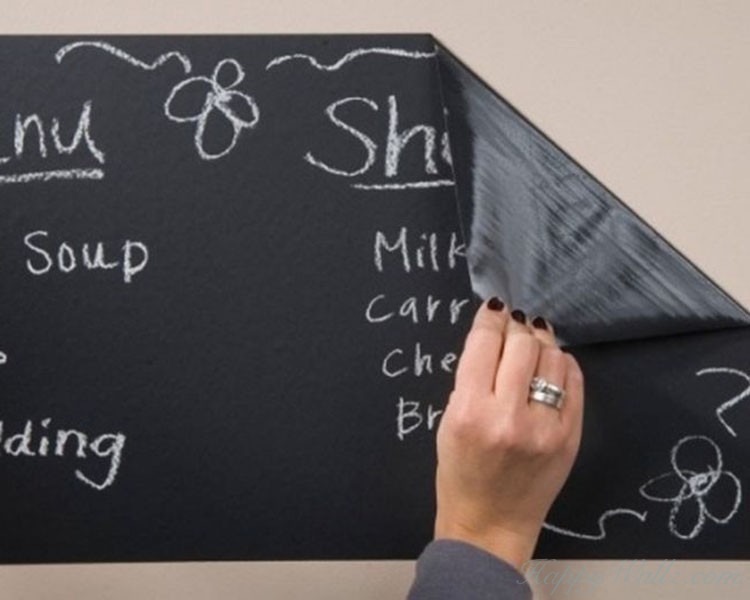 nu
Sh
Soup
Milk
Carr
Che
Br
dding